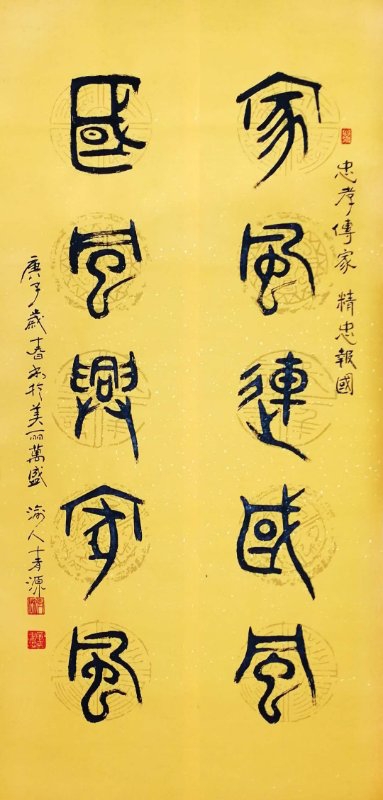 忠孝傳家 精忠報國
家風連國風
國風興家風
庚子歲春書於美丽萬盛 渝人